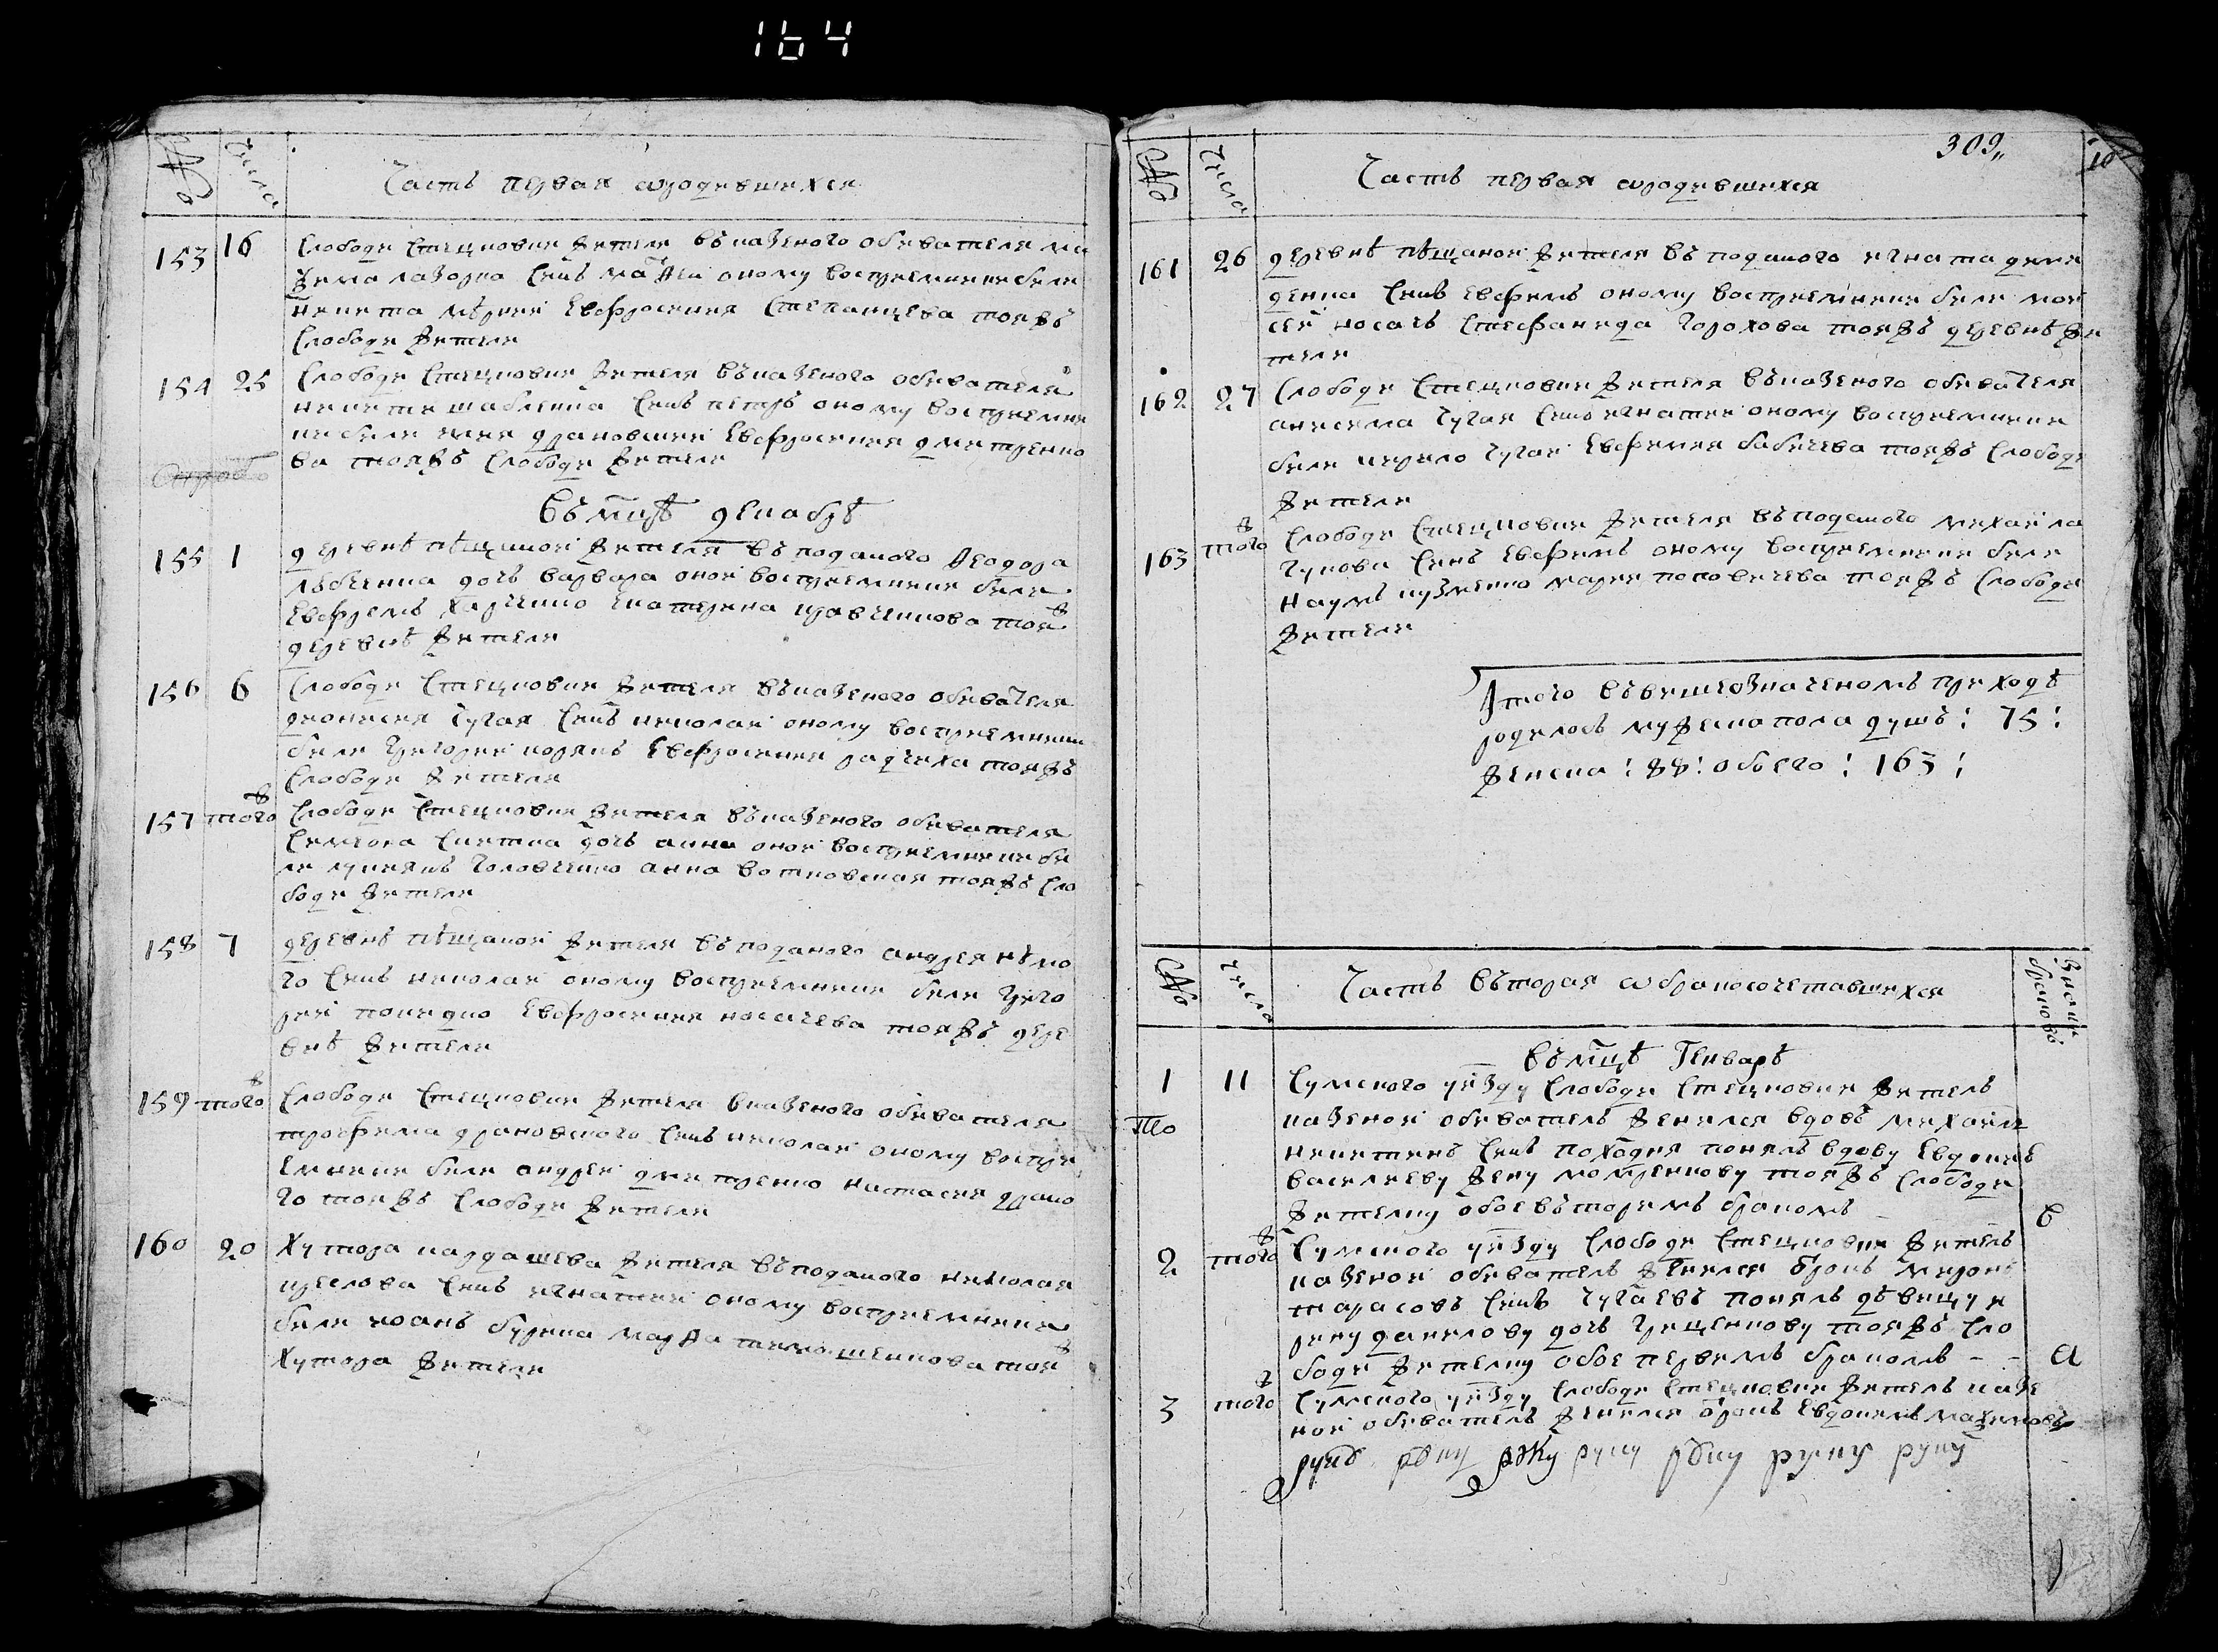 164
№ Числа Часть первая ѡродившихся
153 16 Слободи Стецковки жителя въ казеного обивателя ма
зима лазорка синъ маѳеи оному восприемники били
никита мѣркеи Евфросиния Степанцева тояжъ
Слободи жители
154 25 Слободи Стецковки жителя въ казеного обивателя
никити шабленка синъ петръ оному восприемни
ки били илия драновскии Евфросиния дмитренко
ва тояжъ Слободи жители
въ мцѣ декабрѣ
155 1 деревнѣ пѣщаной жителя въ поданого Ѳеодора
дочь варвара оной восприемники били
Евфремъ харченко Екатерина кравченкова тояж
деревнѣ жители
156 6 Слободи Стецковки жителя въ казеного обивателя
деонисия чугая синъ николай оному восприемники
били григорий корякъ Евфросиния радчиха тояжъ
Слободи жители
157 тогож Слободи Стецковки жителя въ казеного обивателя
Симеона дочь анна оной восприемники би
ли лукиянъ головченко анна вотковская тояжъ Сло
боди жители
158 7 деревнѣ пѣщаной жителя въ поданого андрея нѣмо
го синъ николай оному восприемники били григо
рий Евфросиния носачева тояжъ дере
внѣ жители
159 тогож Слободи Стецковки жителя вказеного обивателя
трофима драновского синъ николай оному воспри
емники били андрей дмитренко настасия драно
го тояжъ Слободи жители
160 20 Хутора кардашева жителя въ поданого николая
креслова синъ игнатий оному восприемники
били иоанъ бурика марѳа тимошенкова тояж
Хутора жители
309
10
№ Числа Часть первая ѡродившихся
161 26 деревнѣ пѣщаной жителя въ поданого игната деми
денка синъ Евфимъ оному восприемники били мои
сей носачъ Стефанида горохова тояжъ деревнѣ жи
тели
162 27 Слободи Стецковки жителя въ казеного обивателя
анисима чугая синъ игнатий оному восприемники
били кирило чугай Евфимия бабичева тояжъ Слободи
жители
163 тогож Слободи Стецковки жителя въ поданого михайла
гукова синъ Евфимъ оному восприемники били
наумъ кузменко мария поповичева тояжъ Слободи
жители
Итого въ вишеозначеномъ приходѣ
родилось мужеска пола душъ: 75:
женска: 88: обоего: 163:
№ числа Часть вѣторая ѡбракосочетавшихся
браковъ
въ мцѣ Генварѣ
1 11 Сумского уѣзду Слободи Стецковки житель
казеной обиватель женился вдовъ михайла
никитинъ синъ походня понялъ вдову Евдокию
василиеву жену тояжъ Слободи
жителку обое вѣторимъ бракомъ в
2 тогож Сумского уѣзду Слободи Стецковки житель
казеной обиватель женился отрокъ миронъ
тарасовъ синъ чугаевъ понялъ дѣвицу и
рину данилову дочь грищенкову тояжъ Сло
боди жителку обое первимъ бракомъ - - а
3 тогож Сумского уѣзду Слободи Стецковки житель казе
ной обиватель женился отрокъ Евдокимъ
руку руку руку